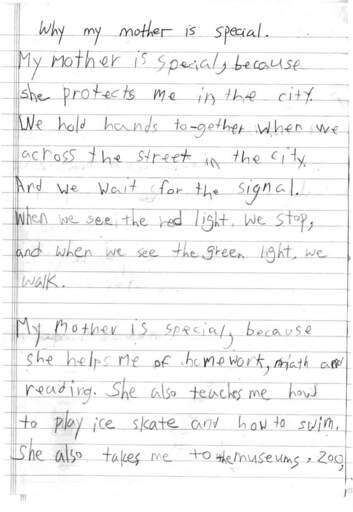 Why my mother is special.
My mother is special, because
she protects me in the city.
We hold hands to-gether when we
across the street in the city.
And we wait for the signal.
When we see the red light. We stop,
and when we see the green light. we
walk.
My mother is special, because
she helps me of homework, math and
reading. She also teaches me how
to play ice skate and how to swim.
She also takes me to the museums, zoo,